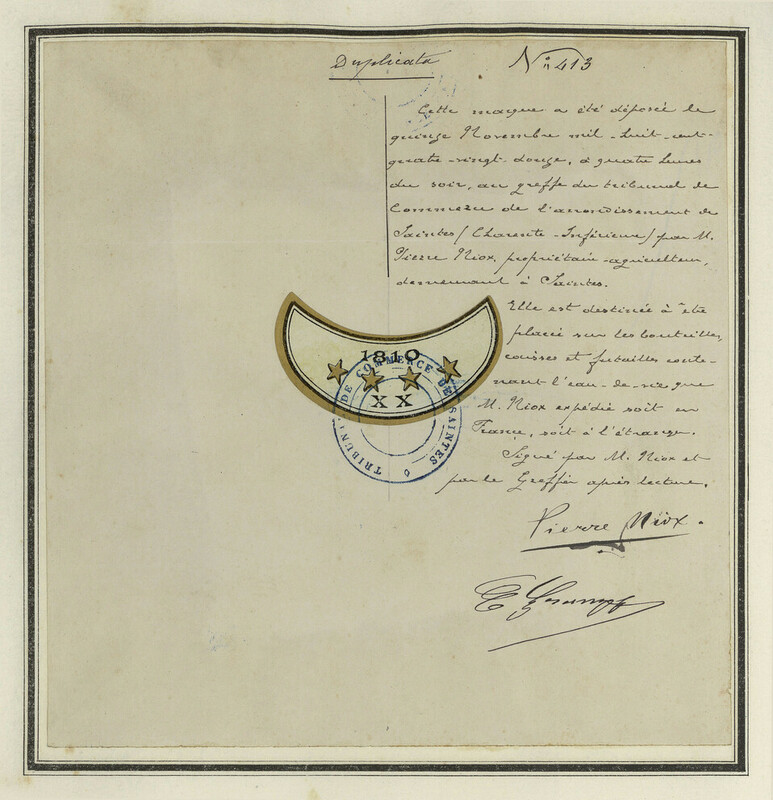 Duplicata
N° 413
Cette marque a été déposée le
quinze Novembre mil-huit-cent-
quatre-vingt-douze, à quatre heures
du soir, au greffe du tribunal de
Commerce de l'arrondissement de
Saintes (Charente-Inférieure) par M.
Pierre Niox, propriétaire-agriculteur,
demeurant à Saintes.
Elle est destinée à être
placée sur les bouteilles,
caisses et futailles conte-
nant l'eau-de-vie que
M. Niox expédie soit en
France, soit à l'étranger.
Signé par M. Niox et
par le Greffier après lecture.
1810
XX
TRIBUNAL DE COMMERCE DE SAINTES
Pierre Niox.